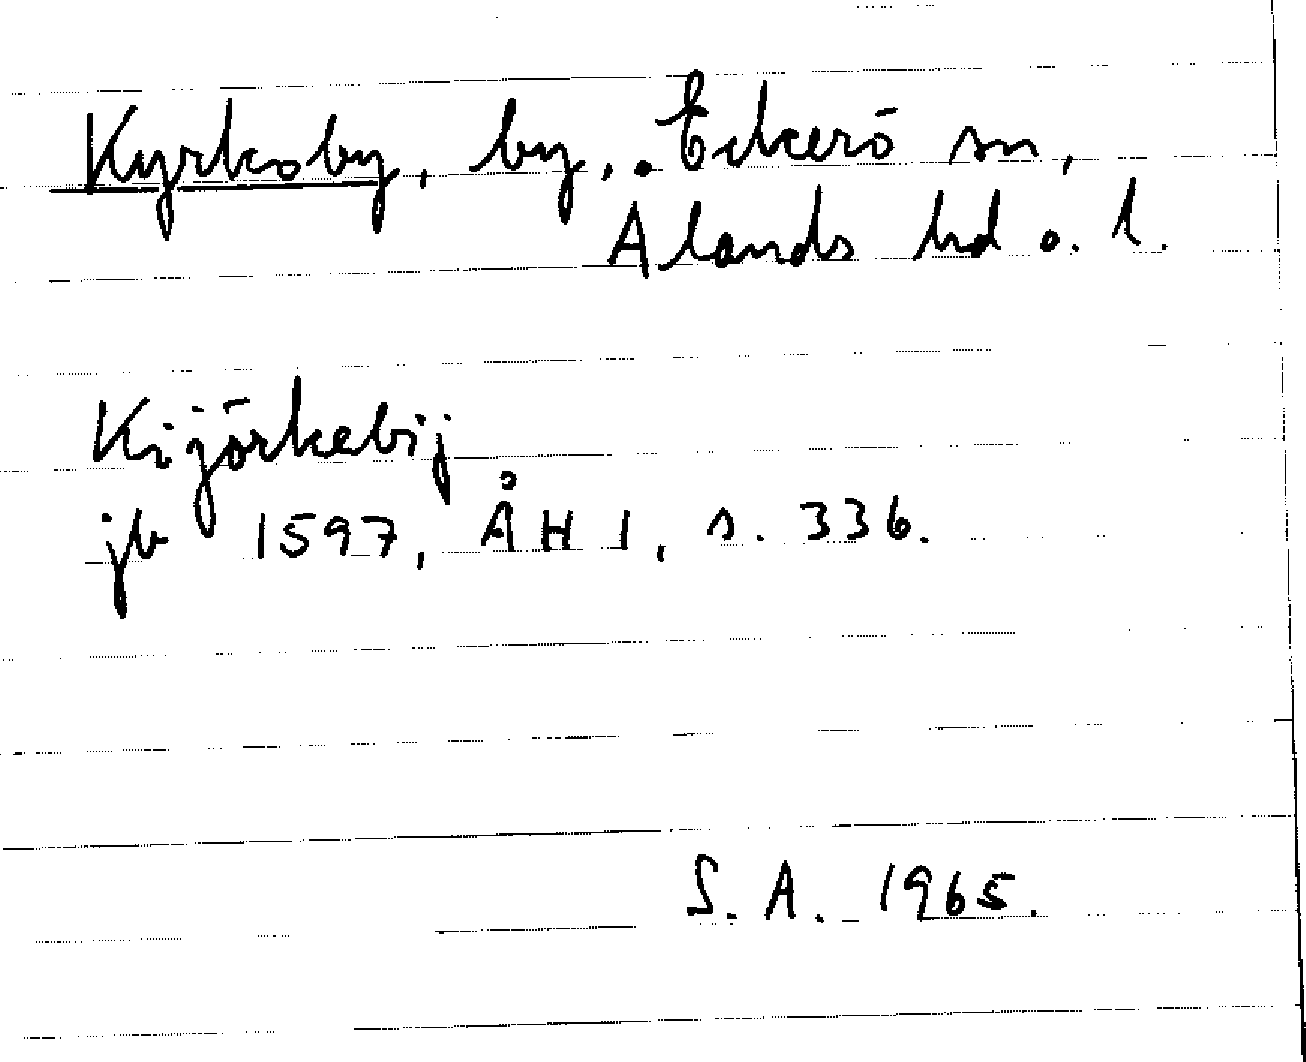 Kyrkoby, by, Eckerö sn,
Ålands hd o. l.
Kijörkebij
jb 1597, ÅH I, s. 336.
S. A. 1965.